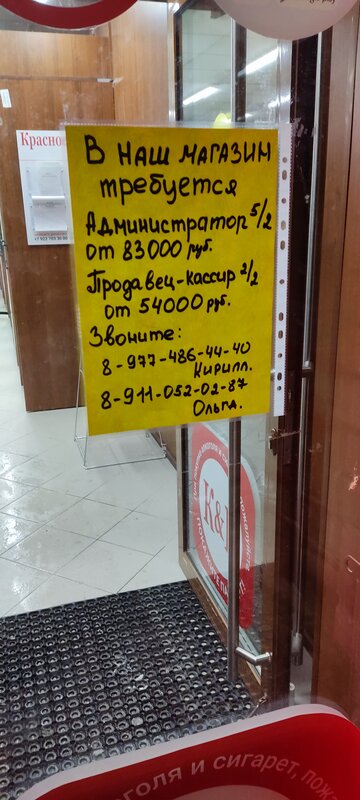 В НАШ МАГАЗИН
требуется
Администратор 5/2
от 83000 руб.
Продавец-кассир 2/2
от 54000 руб.
Звоните:
8-977-486-44-40
Кирилл.
8-911-052-02-87
Ольга.
Красно
K&
коголя и сигарет, пож